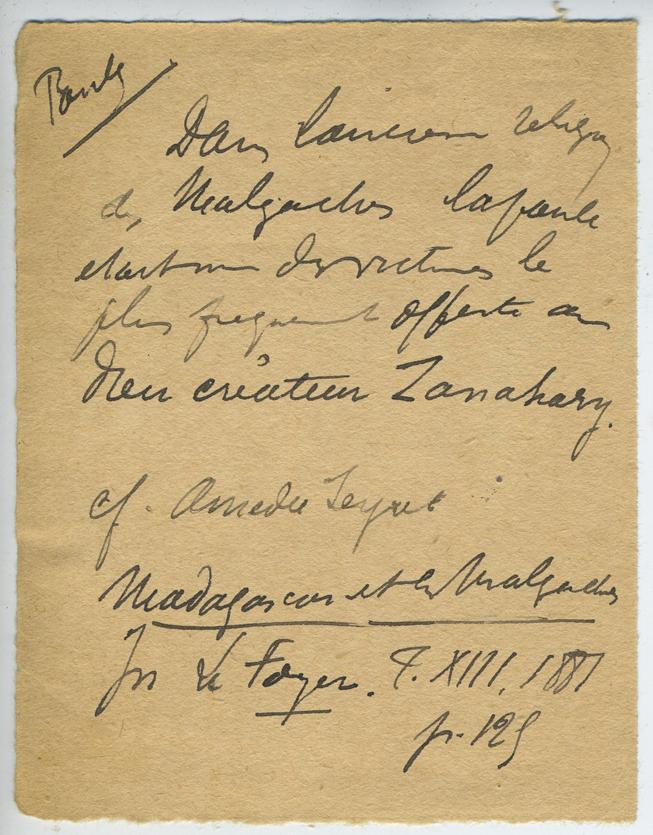 Poule
Dans l'ancienne religion
des Malgaches la poule
etait une des victimes le
plus frequemment offerte au
Dieu créateur Zanahary.
cf. Amedee
Madagascar et les Malgaches
In Le Foyer. T. XIII, 1881
p. 125